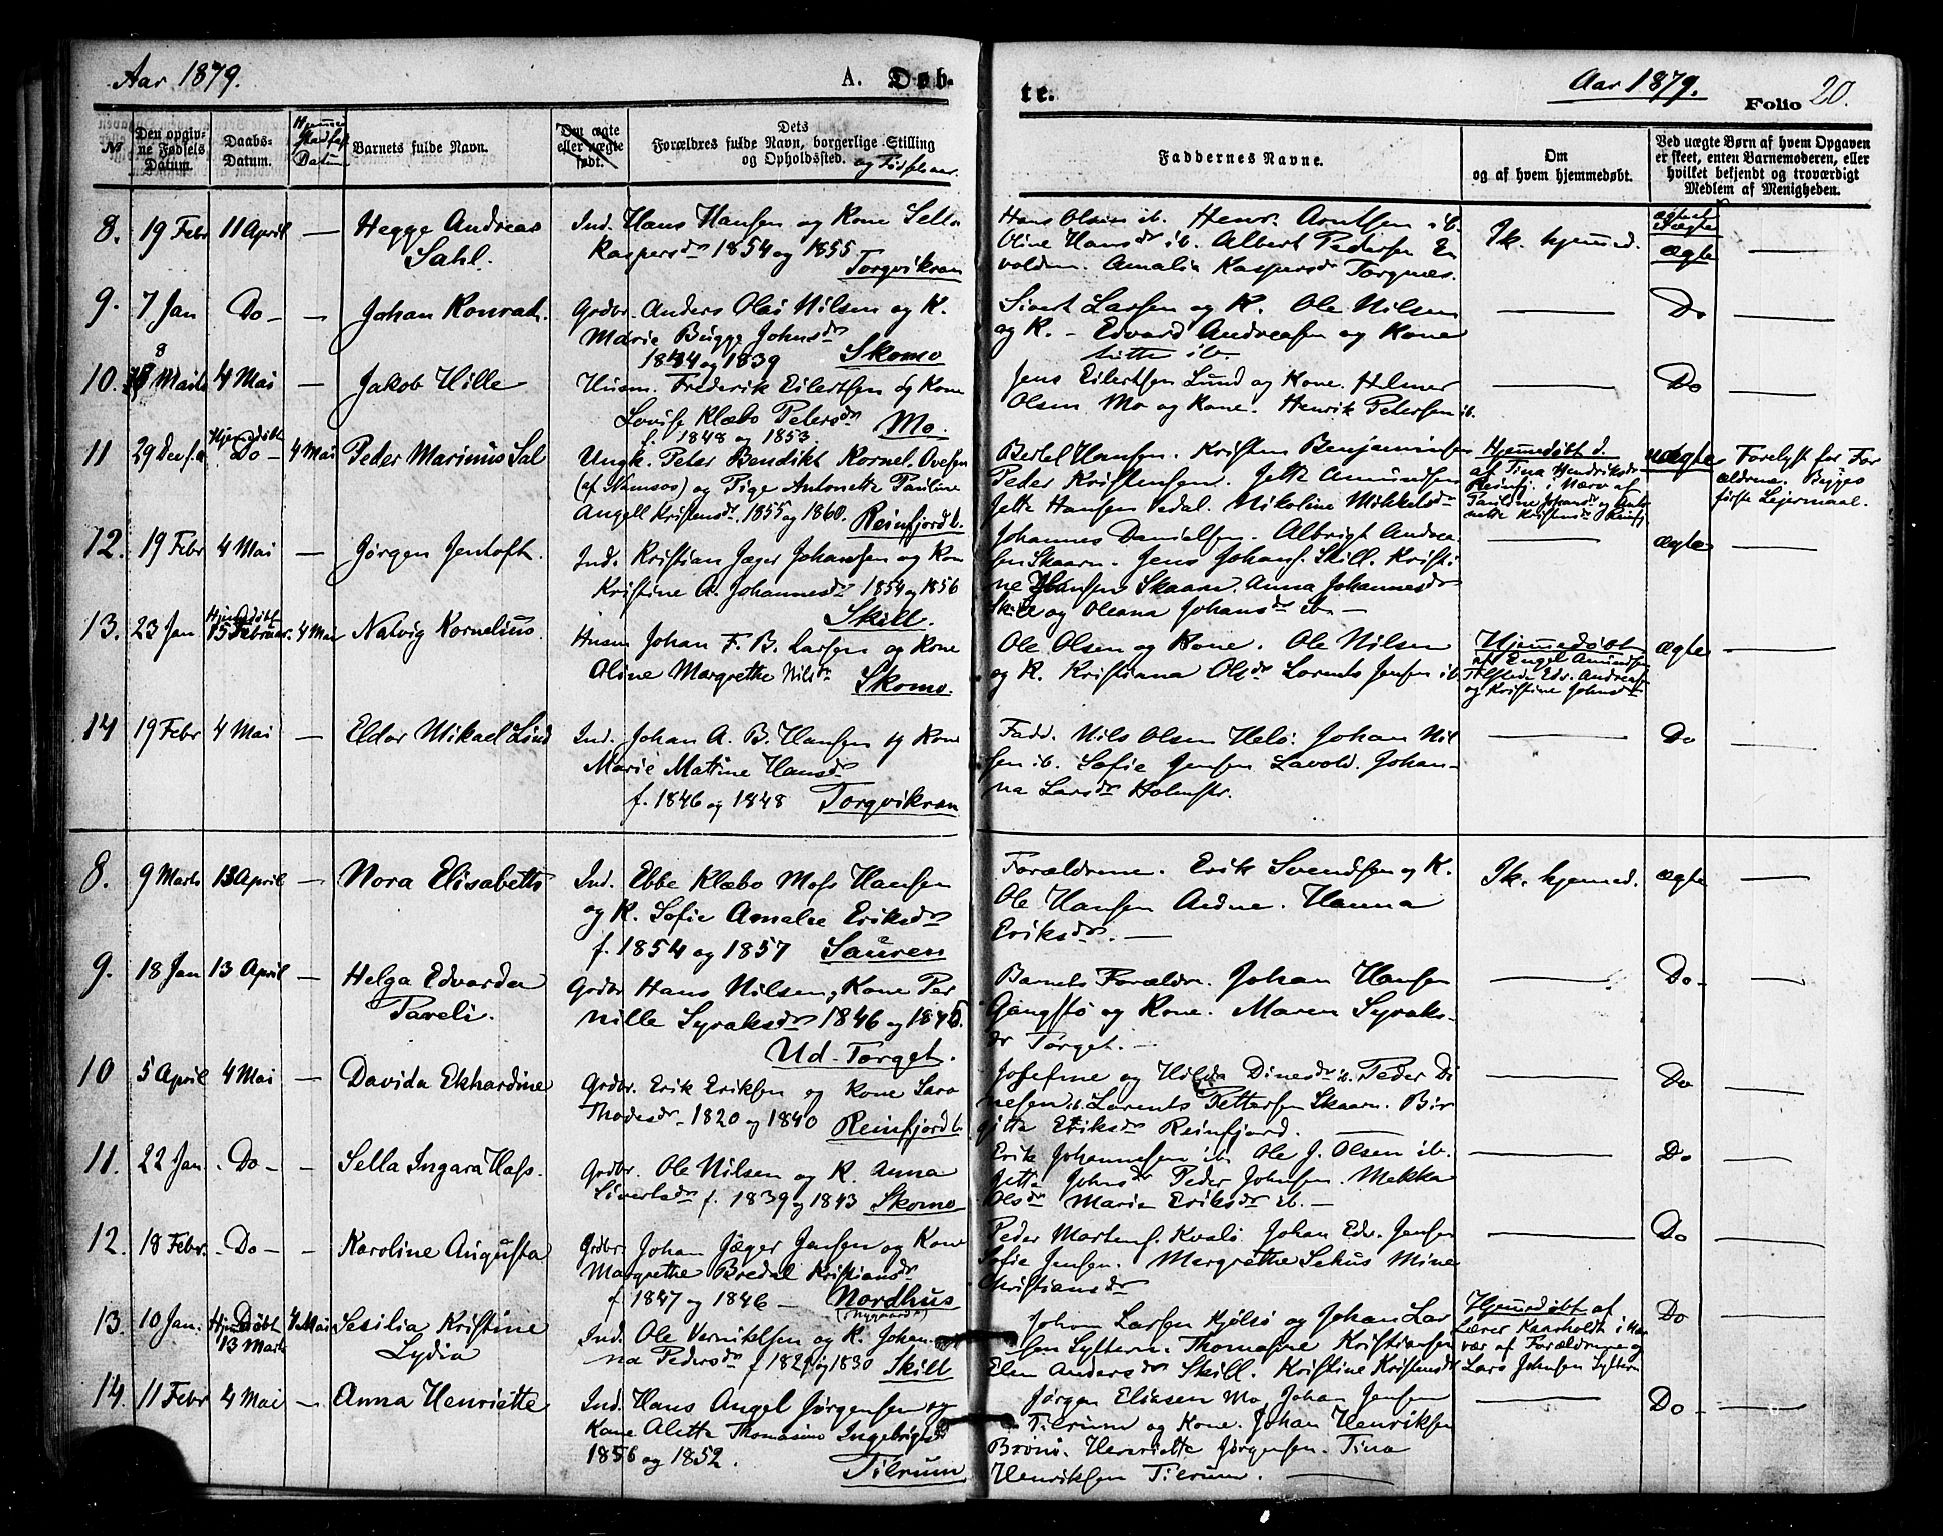 Aar 1879.
A. Døb-
te.
Aar 1879.
Folio 20.
№
Den opgiv-
ne Fødsels
Datum.
Daabs-
Datum.
Datum
Barnets fulde Navn.
Om ægte
eller uægte
født.
Dets
Forældres fulde Navn, borgerlige Stilling
og Opholdssted. og Fødselsaar.
Faddernes Navne.
Om
og af hvem hjemmedøbt.
Ved uægte Børn af hvem Opgaven
er skeet, enten Barnemoderen, eller
hvilket bekjendt og troværdigt
Medlem af Menigheden.
8. 19 Febr 11 April — Hegge Andreas
Sahl.
Ind. Hans Hansen og Kone Sella
Kaspersdr 1854 og 1855
Torgvikran
Hans Olsen ib. Henr. Arntsen ib.
Oline Hansdr ib. Albert Pedersen
volden. Amalia Kaspersdr Torgnæs.
Ik. hjemmed.
ægte
9. 7 Jan Do — Johan Konrad.
Grdbr. Anders Olai Nilsen og K.
Marie Bugge Johnsdr
1844 og 1839 Skomo
Sivert Larsen og K. Ole Nilsen
og K. — Edvard Andreasen og Kone
ib.
Do
10. 8 Marts 4 Mai — Jakob Hille
Husm. Frederik Eilertsen og Kone
Lovise Klæbo Petersdr
f. 1848 og 1853. Mo.
Jens Eilertsen Lund og Kone. Helmer
Olsen Mo og Kone. Henrik Petersen ib.
Do
11 29 Dec f.a. Hjemmedøbt
Do 4 Mai Peder Marinus Sal
Ungk. Peter Bendikt Kornel. Ovesen
(af Namsos) og Pige Antonette Pauline
Angell Kristensdr. 1855 og 1860. Reinfjord
Bertel Hansen. Kristen Benjaminsen
Peder Kristensen. Jette Amundsen
Jette Hansen Nikoline Mikkelsdr
Hjemmedøbt d.
af Tina Hendriksdr
Reinfj. i Nærv af
uægte
12. 19 Febr 4 Mai — Jørgen Jentoft.
Ind. Kristian Jæger Johansen og Kon
Kristine A. Johannesdr 1854 og 1856
Skill.
Johannes Danielsen. Albrigt Andrea-
sen Skaarn. Jens Johans. Skill. Kristi-
ne Johansen Skaarn. Anna Johannesdr
Skill og Oleana Johansdr ib. —
ægte
13. 23 Jan Hjemmedøbt
15 Februar. 4 Mai Nalvig Kornelius.
Husm Johan F. B. Larsen og Kone
Oline Margrethe Nilsdr
Skomo.
Ole Olsen og Kone. Ole Nilsen
og K. Kristiana Olsdr Lorents Jensen ib.
Hjemmedøbt
af Engel Amundsen
og Kristine Johnsdr
ægte
14 19 Febr 4 Mai — Eldor Mikael Lind
Ind. Johan A. B. Hansen og Kone
Marie Matine Hansdr
f. 1846 og 1848 Torgvikran
Fadd. Nils Olsen Helø. Johan Nil-
sen ib. Sofie Jensen Lavold. Johan-
na Larsdr Holmstr.
Do
8. 9 Marts 13 April — Nora Elisabeth
Ind. Ebbe Klæbo Moss Hansen
og K. Sofie Amalie Eriksdr
f. 1854 og 1857 Sauren
Forældrene. Erik Svendsen og K.
Ole Hansen Hanna
Eriksdr. —
Ik. hjemmed.
ægte
9. 18 Jan 13 April — Helga Edvarda
Pareli.
Grdbr Hans Nilsen, Kone Per
nille Syraksdr 1846 og
Ud-Torget.
Barnets Forældre. Johan Hansen
Gangstø og Kone. Maren Syraks-
dr Torget. —
Do
10 5 April 4 Mai — Davida Ekhardine
Grdbr. Erik Eriksen og Kone Sara
Thodesdr 1820 og 1840 Reinfjord
Josefine og Hilda Dinesdr ib. Peder Di
nesen ib. Lorents Pettersen Skaarn. Bir
gitta Eriksdr Reinfjord.
Do
11. 22 Jan. Do — Sella Ingara Hass.
Grdbr. Ole Nilsen og K. Anna
Sivertsdr f. 1839 og 1843 Skomo
Erik Johannesen ib. Ole J. Olsen ib.
Jette Johnsdr Peder Johnsen. Mekka
Olsdr Marie Eriksdr ib. —
Do
12. 18 Febr. Do — Karoline Augusta
Grdbr. Johan Jæger Jensen og Kone
Margrethe Bredal Kristiansdr
f 1847 og 1846 — Nordhus
Peder Martens. Kvalø. Johan Edv. Jensen
Sofie Jensen. Margrethe Sehus Mine
Christiansdr
Do
13. 10 Jan. Hjemmedøbt
13 Marts 4 Mai Sesilia Kristine
Lydia
Ind. Ole Vernikelsen og K. Johan-
na Pedersdr f og 1830 Skill
Johan Larsen Kjølsø og Johan Lar
sen Lyttern. Thomasine Kristiansen
Elen Andersdr Skill. Kristine Kristensdr
Hjemmedøbt af
Lærer Kaarholdt i Nær
vær af Forældrene og
Lars Johnsen
Do
14. 11 Febr 4 Mai — Anna Henriette
Ind. Hans Angel Jørgensen og
Kone Aletta Thomasine Ingebrigtsdr
1856 og 1852. Tilrum
Jørgen Eliasen Mo. Johan Jensen
Tilrum og Kone. Johan Henriksen
Brønø. Henriette Jørgensen. Tina
Henriksen Tilrum. —
Do